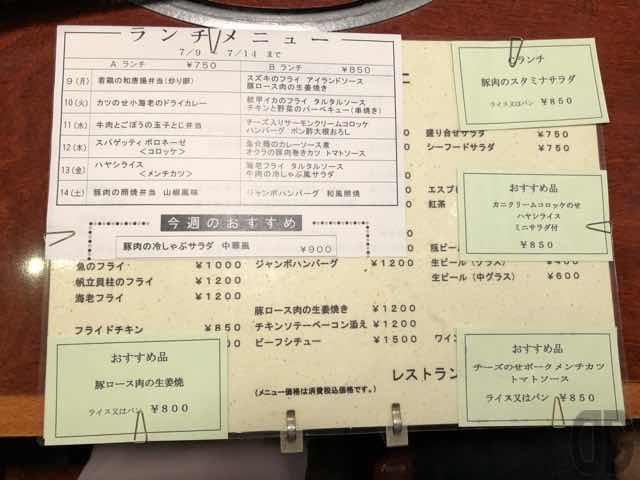 ランチメニュー
7/9 ～ 7/14 まで
A ランチ ¥750
B ランチ ¥850
9(月) 若鶏の和唐揚弁当(炒り豚)
スズキのフライ アイランドソース
豚ロース肉の生姜焼
10(火) カツのせ小海老のドライカレー
紋甲イカのフライ タルタルソース
チキンと野菜のバーベキュー(串焼き)
11(水) 牛肉とごぼうの玉子とじ弁当
チーズ入りサーモンクリームコロッケ
ハンバーグ ポン酢大根おろし
12(木) スパゲッティ ボロネーゼ
<コロッケ>
のカレーソース煮
オクラの豚肉巻きカツ トマトソース
13(金) ハヤシライス
<メンチカツ>
海老フライ タルタルソース
牛肉の冷しゃぶ風サラダ
14(土) 豚肉の照焼弁当 山椒風味
ジャンボハンバーグ 和風照焼
今週のおすすめ
豚肉の冷しゃぶサラダ 中華風 ¥900
Cランチ
豚肉のスタミナサラダ
ライス又はパン ¥850
盛り合せサラダ ¥750
シーフードサラダ ¥750
エスプ
紅茶
おすすめ品
カニクリームコロッケのせ
ハヤシライス
ミニサラダ付
¥850
瓶ビー
生ビール(グラス) ¥400
生ビール(中グラス) ¥600
魚のフライ ¥1000
帆立貝柱のフライ ¥1200
海老フライ ¥1200
フライドチキン ¥850
ジャンボハンバーグ ¥1200
豚ロース肉の生姜焼き ¥1200
チキンソテーベーコン添え ¥1200
ビーフシチュー ¥1500
ワイン
レストラン
(メニュー価格は消費税込価格です。)
おすすめ品
豚ロース肉の生姜焼
ライス又はパン ¥800
おすすめ品
チーズのせポークメンチカツ
トマトソース
ライス又はパン ¥850